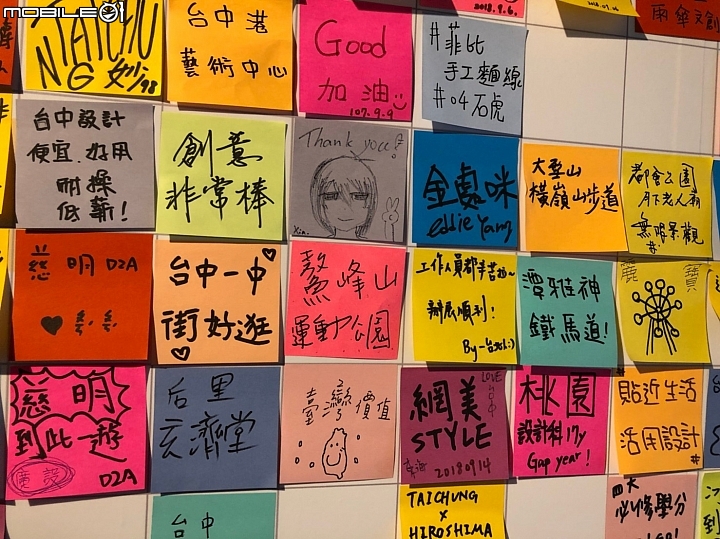 mobile01
TAICHU
NG 妙 1/98
台中港
藝術中心
Good
加油
107.9.9
2018.9.6.
#菲比
手工麵線
#04石虎
雨傘文創
台中設計
便宜.好用
耐操
低薪!
創意
非常棒
Thank you!
Xin.
金處咪
eddie Yang
大坑山
橫嶺山步道
都會公園
月下老人菊
無限景觀
#
慈明 D2A
台中一中
街好逛
鰲峰山
運動公園
工作人員都辛苦~
辦展順利!
By-台北:)
潭雅神
鐵馬道!
麗寶
慈明
到此一遊
廣設 D2A
后里
玄濟堂
臺灣價值
LOVE
台中
網美
STYLE
東海 20180914
桃園
設計科17y
Gap year!
貼近生活
活用設計
#
台中
TAICHUNG
x
HIROSHIMA
四大
必修學分